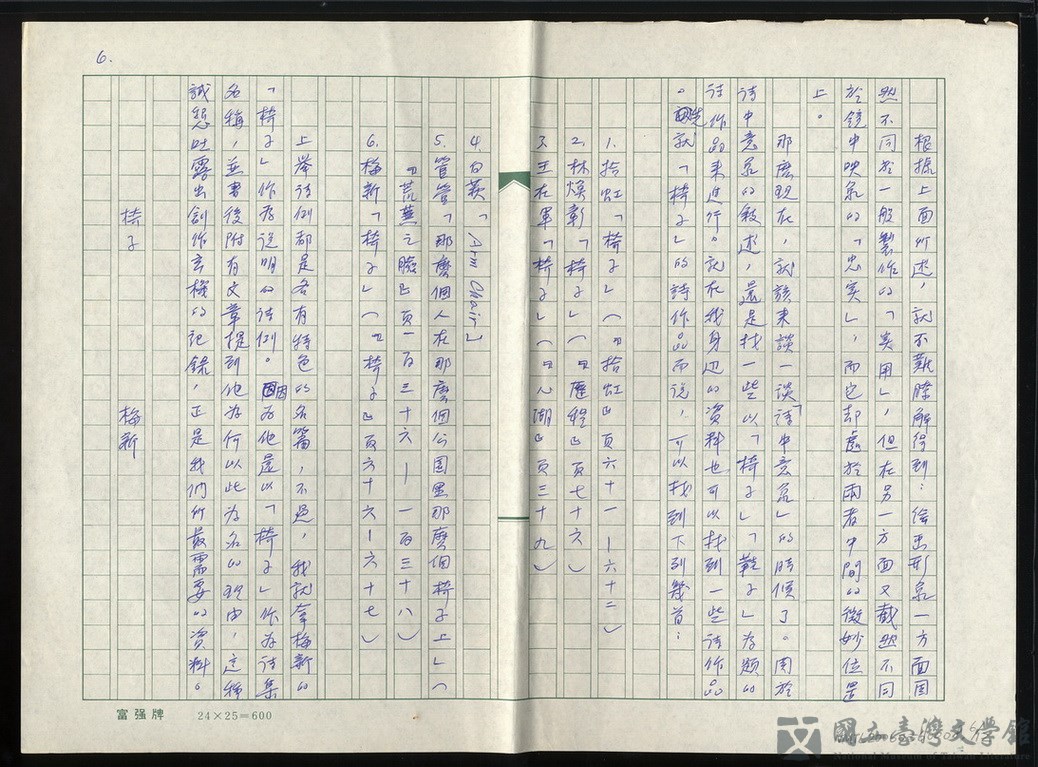 6.
根據上面所述，就不難瞭解得到：繪畫形象一方面固
然不同於一般製作的「実用」，但在另一方面又截然不同
於鏡中映象的「忠実」，而它却處於兩者中間的微妙位置
上。
那麼現在，就該來談一談「詩中意象」的時候了。関於
詩中意象的敘述，還是找一些以「椅子」「鞋子」為題的
詩作品來進行。就在我身边的資料也可以找到一些詩作品
。先就「椅子」的詩作品而說，可以找到下列幾首：
1.拾虹「椅子」（『拾虹』頁六十一－六十二）
2.林煥彰「椅子」（『歷程』頁七十六）
3.王在軍「椅子」（『心湖』頁三十九）
4.白萩「Arm Chair」
5.管管「那麼個人在那麼個公園里那麼個椅子上」（
『荒蕪之臉』頁一百三十六－一百三十八）
6.梅新「椅子」（『椅子』頁六十六－六十七）
上舉詩例都是各有特色的名篇，不過，我就拿梅新的
「椅子」作為說明的詩例。因為他還以「椅子」作為詩集
名稱，並書後附有文章提到他為何以此為名的理由，這種
誠懇吐露出創作玄機的記錄，正是我們所最需要的資料。
椅子　　梅新
富强牌　24×25=600
國立臺灣文学館
National Museum of Taiwan Literature